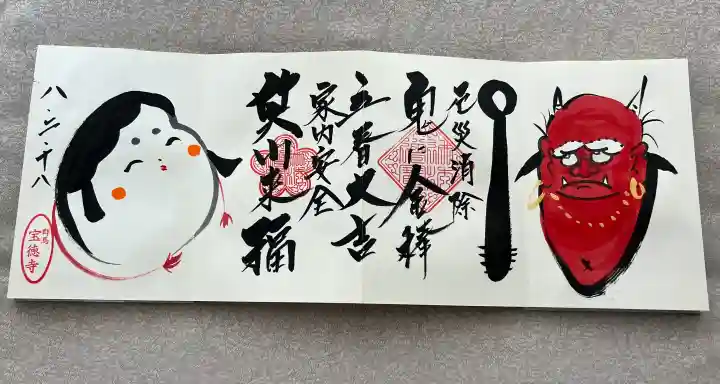 厄災消除
鬼に金棒
立春大吉
家内安全
笑門来福
八・二・十八
群馬
宝徳寺